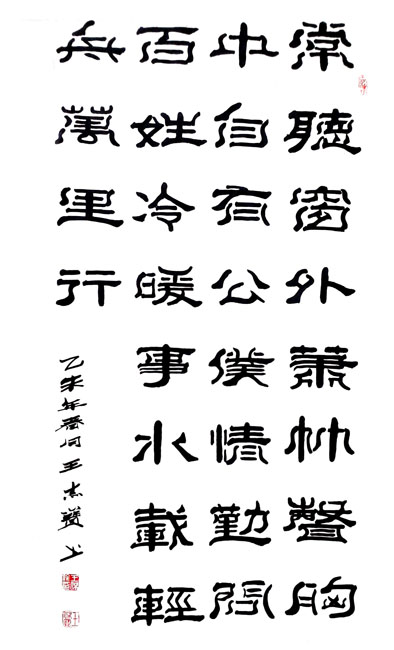 常聽窗外蕭竹聲胸
中自有公僕情勤問
百姓冷暖事水載輕
舟萬里行
乙未年春月王志